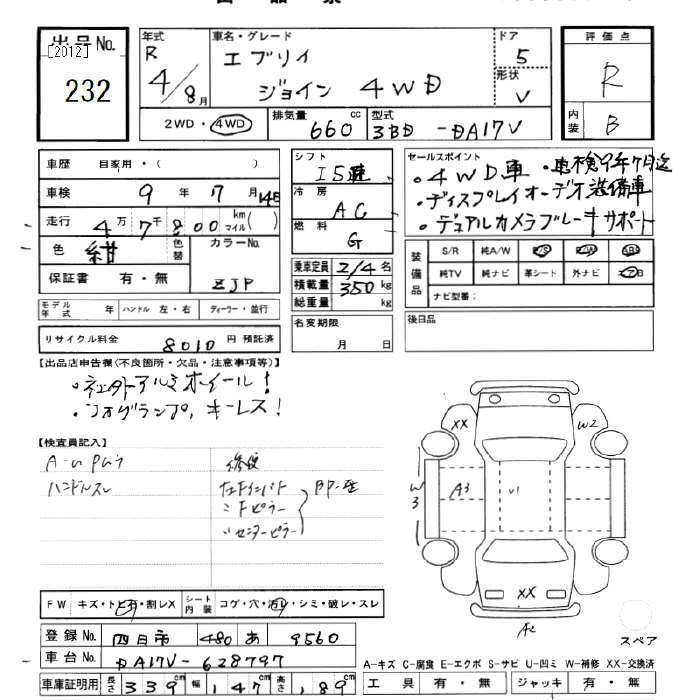 出品票
出品No.
[2012]
232
年式 R 4/8月
車名・グレード エブリイ
ジョイン 4WD
ドア 5
形状 V
評価点 R
内装 B
2WD・4WD
排気量 660 cc
型式 3BD-DA17V
車歴 自家用・( )
車検 9年 7月 14日
走行 4万7千800 km マイル( )
色 紺 色替
カラーNo. ZJP
保証書 有・無
モデル年式 年 ハンドル 左・右 ディーラー・並行
リサイクル料金 8010 円 預託済
シフト I5速
冷房 AC
燃料 G
乗車定員 2/4 名
積載量 350 kg
総重量 kg
名変期限 月 日
セールスポイント
・4WD車 ・車検9年7月迄
・ディスプレイオーディオ装備車
・デュアルカメラブレーキサポート
装備品 S/R 純A/W P/S P/W ABS
純TV 純ナビ 革シート 外ナビ エアB
ナビ型番:
後日品
【出品店申告欄(不良箇所・欠品・注意事項等)】
・社外アルミホイール!
・フォグランプ, キーレス!
【検査員記入】
ハンドルスレ
修復
左Fインパネ
〃Fピラー
〃センターピラー
XX
W2
W3
A3
U1
XX
A2
スペア
FW キズ・トビ石・割レX
シート内装 コゲ・穴・汚レ・シミ・破レ・スレ
登録No. 四日市 480 あ 9560
車台No. DA17V-628797
車庫証明用 長さ 339 幅 147 高さ 189
A-キズ C-腐食 E-エクボ S-サビ U-凹ミ W-補修 XX-交換済
工具 有・無 ジャッキ 有・無